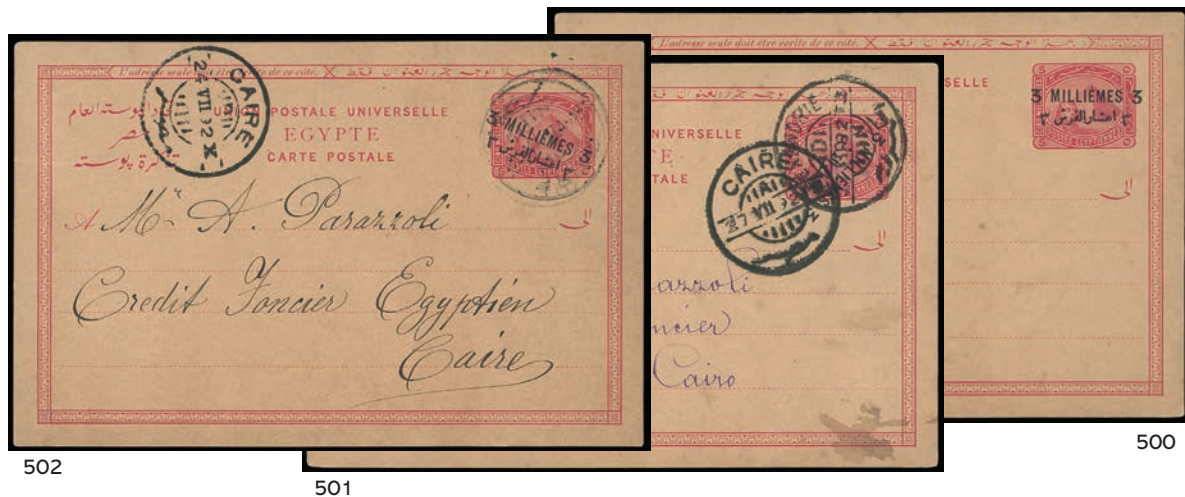 L'adresse seule doit être écrite de ce côté.
UNION POSTALE UNIVERSELLE
EGYPTE
CARTE POSTALE
تذكرة بوسته
مصر
CAIRE
24 VII 92 X
3 MILLIÈMES 3
٣ ٣
A Mr A. Parazzoli
الى
Credit Foncier Egyptien
Caire
502
UNIVERSELLE
CAIRE
VII
الى
azzoli
ncier
Cairo
501
L'adresse seule doit être écrite de ce côté.
SELLE
3 MILLIÈMES 3
٣ اعشار القرش ٣
الى
500